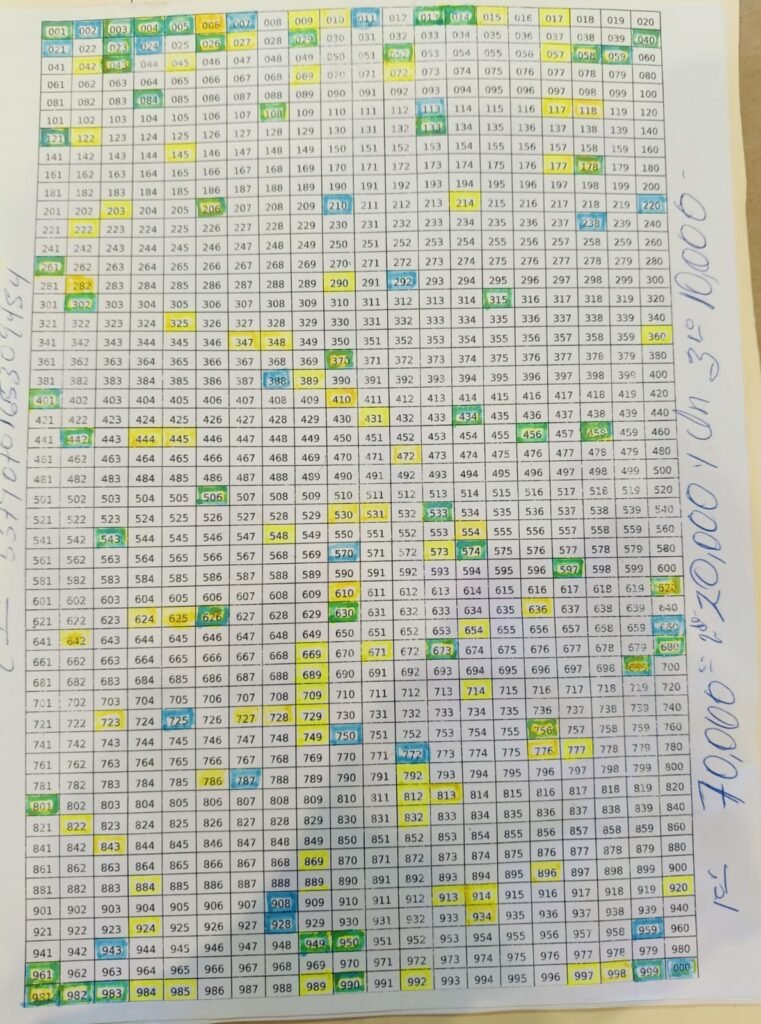 001 002 003 004 005 006 007 008 009 010 011 012 013 014 015 016 017 018 019 020
021 022 023 024 025 026 027 028 029 030 031 032 033 034 035 036 037 038 039 040
041 042 043 044 045 046 047 048 049 050 051 052 053 054 055 056 057 058 059 060
061 062 063 064 065 066 067 068 069 070 071 072 073 074 075 076 077 078 079 080
081 082 083 084 085 086 087 088 089 090 091 092 093 094 095 096 097 098 099 100
101 102 103 104 105 106 107 108 109 110 111 112 113 114 115 116 117 118 119 120
121 122 123 124 125 126 127 128 129 130 131 132 133 134 135 136 137 138 139 140
141 142 143 144 145 146 147 148 149 150 151 152 153 154 155 156 157 158 159 160
161 162 163 164 165 166 167 168 169 170 171 172 173 174 175 176 177 178 179 180
181 182 183 184 185 186 187 188 189 190 191 192 193 194 195 196 197 198 199 200
201 202 203 204 205 206 207 208 209 210 211 212 213 214 215 216 217 218 219 220
221 222 223 224 225 226 227 228 229 230 231 232 233 234 235 236 237 238 239 240
241 242 243 244 245 246 247 248 249 250 251 252 253 254 255 256 257 258 259 260
261 262 263 264 265 266 267 268 269 270 271 272 273 274 275 276 277 278 279 280
281 282 283 284 285 286 287 288 289 290 291 292 293 294 295 296 297 298 299 300
301 302 303 304 305 306 307 308 309 310 311 312 313 314 315 316 317 318 319 320
321 322 323 324 325 326 327 328 329 330 331 332 333 334 335 336 337 338 339 340
341 342 343 344 345 346 347 348 349 350 351 352 353 354 355 356 357 358 359 360
361 362 363 364 365 366 367 368 369 370 371 372 373 374 375 376 377 378 379 380
381 382 383 384 385 386 387 388 389 390 391 392 393 394 395 396 397 398 399 400
401 402 403 404 405 406 407 408 409 410 411 412 413 414 415 416 417 418 419 420
421 422 423 424 425 426 427 428 429 430 431 432 433 434 435 436 437 438 439 440
441 442 443 444 445 446 447 448 449 450 451 452 453 454 455 456 457 458 459 460
461 462 463 464 465 466 467 468 469 470 471 472 473 474 475 476 477 478 479 480
481 482 483 484 485 486 487 488 489 490 491 492 493 494 495 496 497 498 499 500
501 502 503 504 505 506 507 508 509 510 511 512 513 514 515 516 517 518 519 520
521 522 523 524 525 526 527 528 529 530 531 532 533 534 535 536 537 538 539 540
541 542 543 544 545 546 547 548 549 550 551 552 553 554 555 556 557 558 559 560
561 562 563 564 565 566 567 568 569 570 571 572 573 574 575 576 577 578 579 580
581 582 583 584 585 586 587 588 589 590 591 592 593 594 595 596 597 598 599 600
601 602 603 604 605 606 607 608 609 610 611 612 613 614 615 616 617 618 619 620
621 622 623 624 625 626 627 628 629 630 631 632 633 634 635 636 637 638 639 640
641 642 643 644 645 646 647 648 649 650 651 652 653 654 655 656 657 658 659 660
661 662 663 664 665 666 667 668 669 670 671 672 673 674 675 676 677 678 679 680
681 682 683 684 685 686 687 688 689 690 691 692 693 694 695 696 697 698 699 700
701 702 703 704 705 706 707 708 709 710 711 712 713 714 715 716 717 718 719 720
721 722 723 724 725 726 727 728 729 730 731 732 733 734 735 736 737 738 739 740
741 742 743 744 745 746 747 748 749 750 751 752 753 754 755 756 757 758 759 760
761 762 763 764 765 766 767 768 769 770 771 772 773 774 775 776 777 778 779 780
781 782 783 784 785 786 787 788 789 790 791 792 793 794 795 796 797 798 799 800
801 802 803 804 805 806 807 808 809 810 811 812 813 814 815 816 817 818 819 820
821 822 823 824 825 826 827 828 829 830 831 832 833 834 835 836 837 838 839 840
841 842 843 844 845 846 847 848 849 850 851 852 853 854 855 856 857 858 859 860
861 862 863 864 865 866 867 868 869 870 871 872 873 874 875 876 877 878 879 880
881 882 883 884 885 886 887 888 889 890 891 892 893 894 895 896 897 898 899 900
901 902 903 904 905 906 907 908 909 910 911 912 913 914 915 916 917 918 919 920
921 922 923 924 925 926 927 928 929 930 931 932 933 934 935 936 937 938 939 940
941 942 943 944 945 946 947 948 949 950 951 952 953 954 955 956 957 958 959 960
961 962 963 964 965 966 967 968 969 970 971 972 973 974 975 976 977 978 979 980
981 982 983 984 985 986 987 988 989 990 991 992 993 994 995 996 997 998 999 000
70,000= 20,000 y Un 3º 10,000-